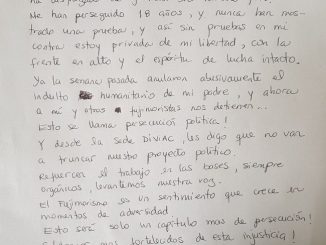 Me han perseguido 18 años, y nunca han mos-
trado una prueba, y así sin pruebas en mi
contra estoy privada de mi libertad, con la
frente en alto y el espíritu de lucha intacto.
Ya la semana pasada anularon abusivamente el
indulto humanitario de mi padre, y ahora
a mi y otros fujimoristas nos detienen...
Esto se llama persecución política!
Y desde la sede DIVIAC, les digo que no van
a truncar nuestro proyecto político.
Refuercen el trabajo en las bases, siempre
orgánicos, levantemos nuestra voz.
El Fujimorismo es un sentimiento que crece en
momentos de adversidad
Esto será solo un capítulo mas de persecución!
mas fortalecidos de esta injusticia!